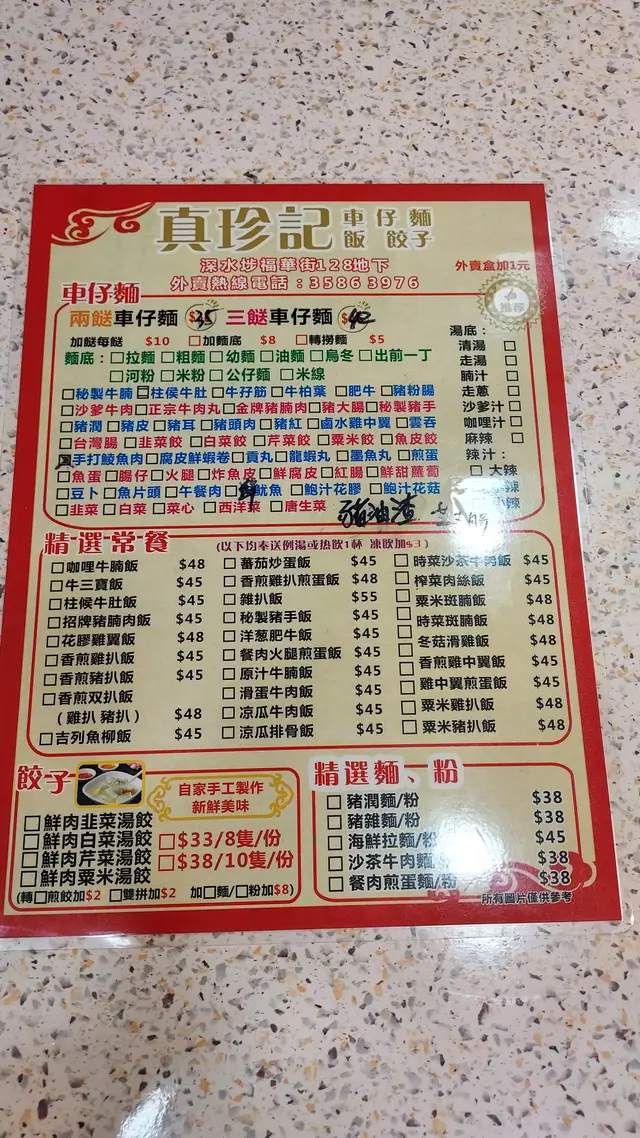 真珍記 車仔麵
飯 餃子
深水埗福華街128地下
外賣熱線電話：35863976
外賣盒加1元
車仔麵
兩餸車仔麵 $35 三餸車仔麵 $42
推薦
加餸每餸 $10 □加麵底 $8 □轉撈麵 $5
麵底：□拉麵 □粗麵 □幼麵 □油麵 □烏冬 □出前一丁
□河粉 □米粉 □公仔麵 □米線
□秘製牛腩 □柱侯牛肚 □牛孖筋 □牛柏葉 □肥牛 □豬粉腸
□沙爹牛肉 □正宗牛肉丸 □金牌豬腩肉 □豬大腸 □秘製豬手
□豬潤 □豬皮 □豬耳 □豬頭肉 □豬紅 □鹵水雞中翼 □雲吞
□台灣腸 □韭菜餃 □白菜餃 □芹菜餃 □粟米餃 □魚皮餃
□手打鯪魚肉 □腐皮鮮蝦卷 □貢丸 □龍蝦丸 □墨魚丸 □煎蛋
□魚蛋 □腸仔 □火腿 □炸魚皮 □鮮腐皮 □紅腸 □鮮甜蘿蔔
□豆卜 □魚片頭 □午餐肉 □魷魚 □鮑汁花膠 □鮑汁花菇
□韭菜 □白菜 □菜心 □西洋菜 □唐生菜
豬油渣
湯底：
清湯 □
走湯 □
腩汁 □
走蔥 □
沙爹汁 □
咖哩汁 □
麻辣 □
辣汁：
□大辣
精選常餐 (以下均奉送例湯或热飲1杯 凍飲加$3)
□咖哩牛腩飯 $48
□牛三寶飯 $45
□柱候牛肚飯 $45
□招牌豬腩肉飯 $45
□花膠雞翼飯 $48
□香煎雞扒飯 $45
□香煎豬扒飯 $45
□香煎双扒飯
(雞扒 豬扒) $48
□吉列魚柳飯 $45
□蕃茄炒蛋飯 $45
□香煎雞扒煎蛋飯 $48
□雜扒飯 $55
□秘製豬手飯 $45
□洋葱肥牛飯 $45
□餐肉火腿煎蛋飯 $45
□原汁牛腩飯 $45
□滑蛋牛肉飯 $45
□涼瓜牛肉飯 $45
□涼瓜排骨飯 $45
□時菜沙茶牛肉飯 $45
□榨菜肉絲飯 $45
□粟米斑腩飯 $48
□時菜斑腩飯 $48
□冬菇滑雞飯 $48
□香煎雞中翼飯 $45
□雞中翼煎蛋飯 $45
□粟米雞扒飯 $48
□粟米豬扒飯 $48
餃子
自家手工製作
新鮮美味
□鮮肉韭菜湯餃
□鮮肉白菜湯餃
□鮮肉芹菜湯餃
□鮮肉粟米湯餃
□$33/8隻/份
□$38/10隻/份
(轉□煎餃加$2 □雙拼加$2 加□麵/□粉加$8)
精選麵、粉
□豬潤麵/粉 $38
□豬雜麵/粉 $38
□海鮮拉麵/粉 $45
□沙茶牛肉麵/粉 $38
□餐肉煎蛋麵/粉 $38
所有圖片僅供參考